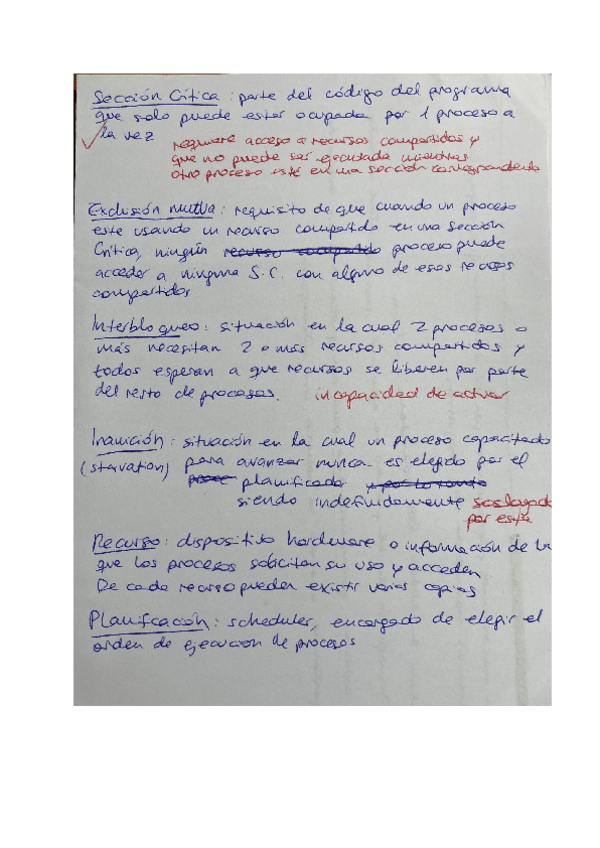 Sección Crítica : parte del código del programa
que solo puede estar ocupada por 1 proceso a
la vez
requiere acceso a recursos compartidos y
que no puede ser ejecutada mientras
otro proceso esté en una sección correspondiente
Exclusión mutua : requisito de que cuando un proceso
este usando un recurso compartido en una sección
Crítica, ningún recurso compartido proceso puede
acceder a ninguna S.C. con alguno de esos recursos
compartidos
Interbloqueo : situación en la cual 2 procesos o
más necesitan 2 o más recursos compartidos y
todos esperan a que recursos se liberen por parte
del resto de procesos. incapacidad de actuar
Inanición : situación en la cual un proceso capacitado
(starvation) para avanzar nunca es elegido por el
planificado
siendo indefinidamente soslayad
por este
Recurso : dispositivo hardware o información de la
que los procesos solicitan su uso y acceden
De cada recurso pueden existir varias copias
Planificación : scheduler, encargado de elegir el
orden de ejecución de procesos